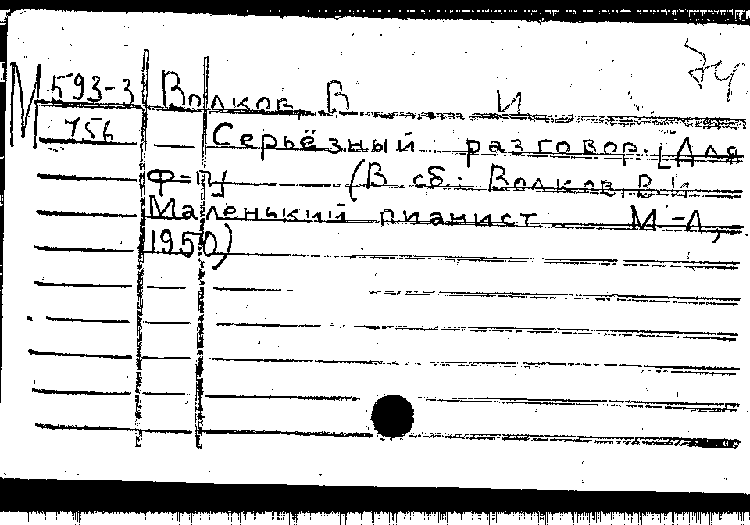 М 593-3 Волков, В И
756 Серьёзный разговор. [Для
ф-п] (В сб.: Волков, В.И.
Маленький пианист М-Л,
1950)